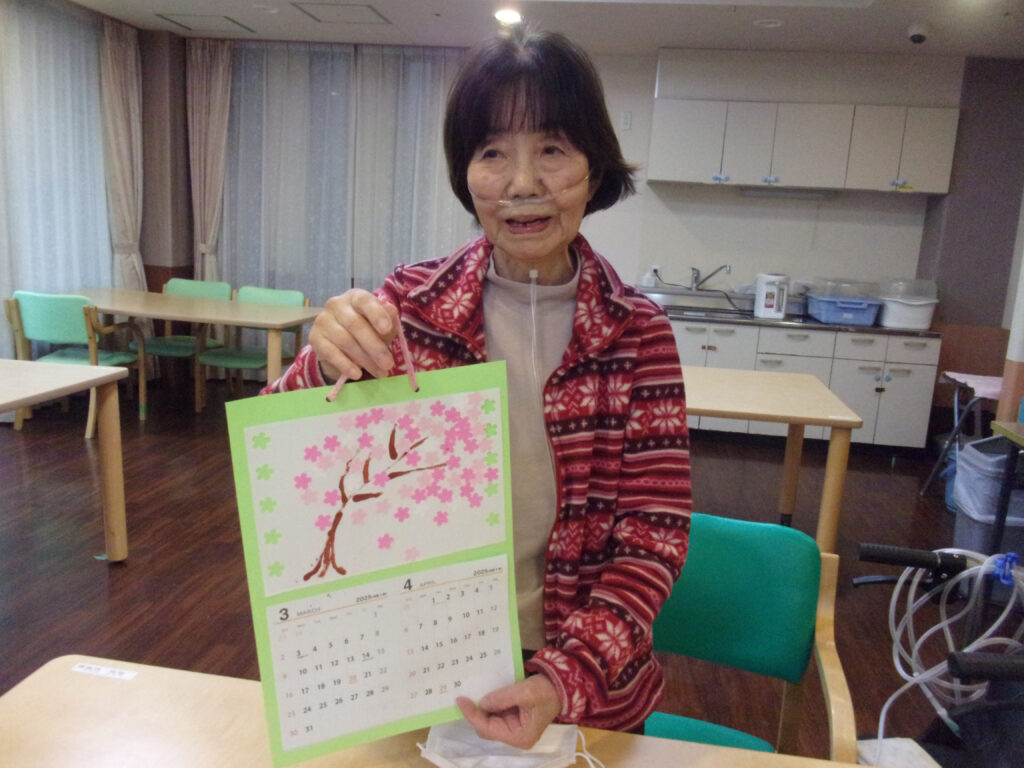 3 MARCH 2025
1
2 3 4 5 6 7 8
9 10 11 12 13 14 15
16 17 18 19 20 21 22
23 24 25 26 27 28 29
30 31
4 APRIL 2025
1 2 3 4 5
6 7 8 9 10 11 12
13 14 15 16 17 18 19
20 21 22 23 24 25 26
27 28 29 30